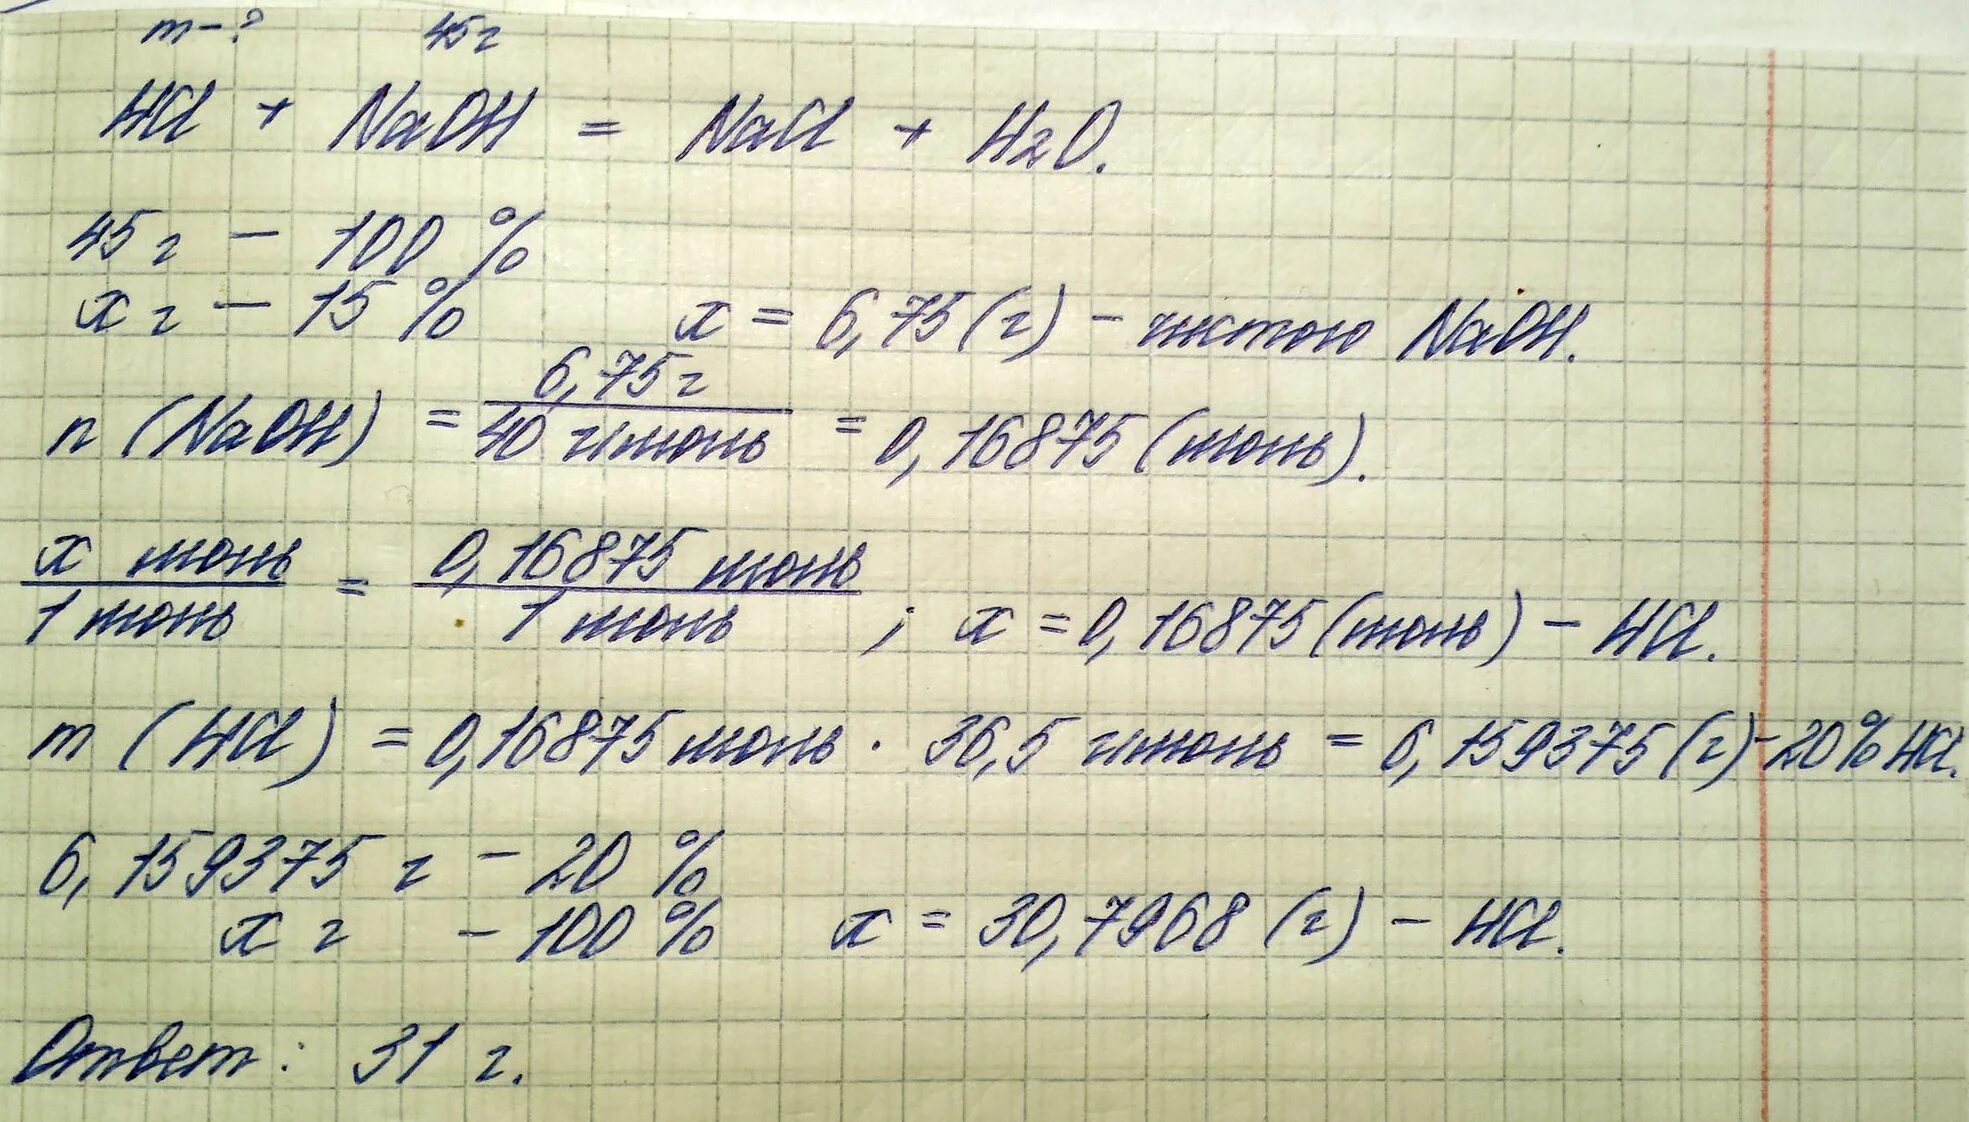 m - ? 45 г
HCl + NaOH = NaCl + H2O.
45 г - 100 %
x г - 15 % x = 6,75 (г) - чистого NaOH.
n (NaOH) = 6,75 г / 40 г/моль = 0,16875 (моль).
x моль / 1 моль = 0,16875 моль / 1 моль ; x = 0,16875 (моль) - HCl.
m (HCl) = 0,16875 моль · 36,5 г/моль = 6,159375 (г) - 20% HCl.
6,159375 г - 20 %
x г - 100 % x = 30,7968 (г) - HCl.
Ответ : 31 г.